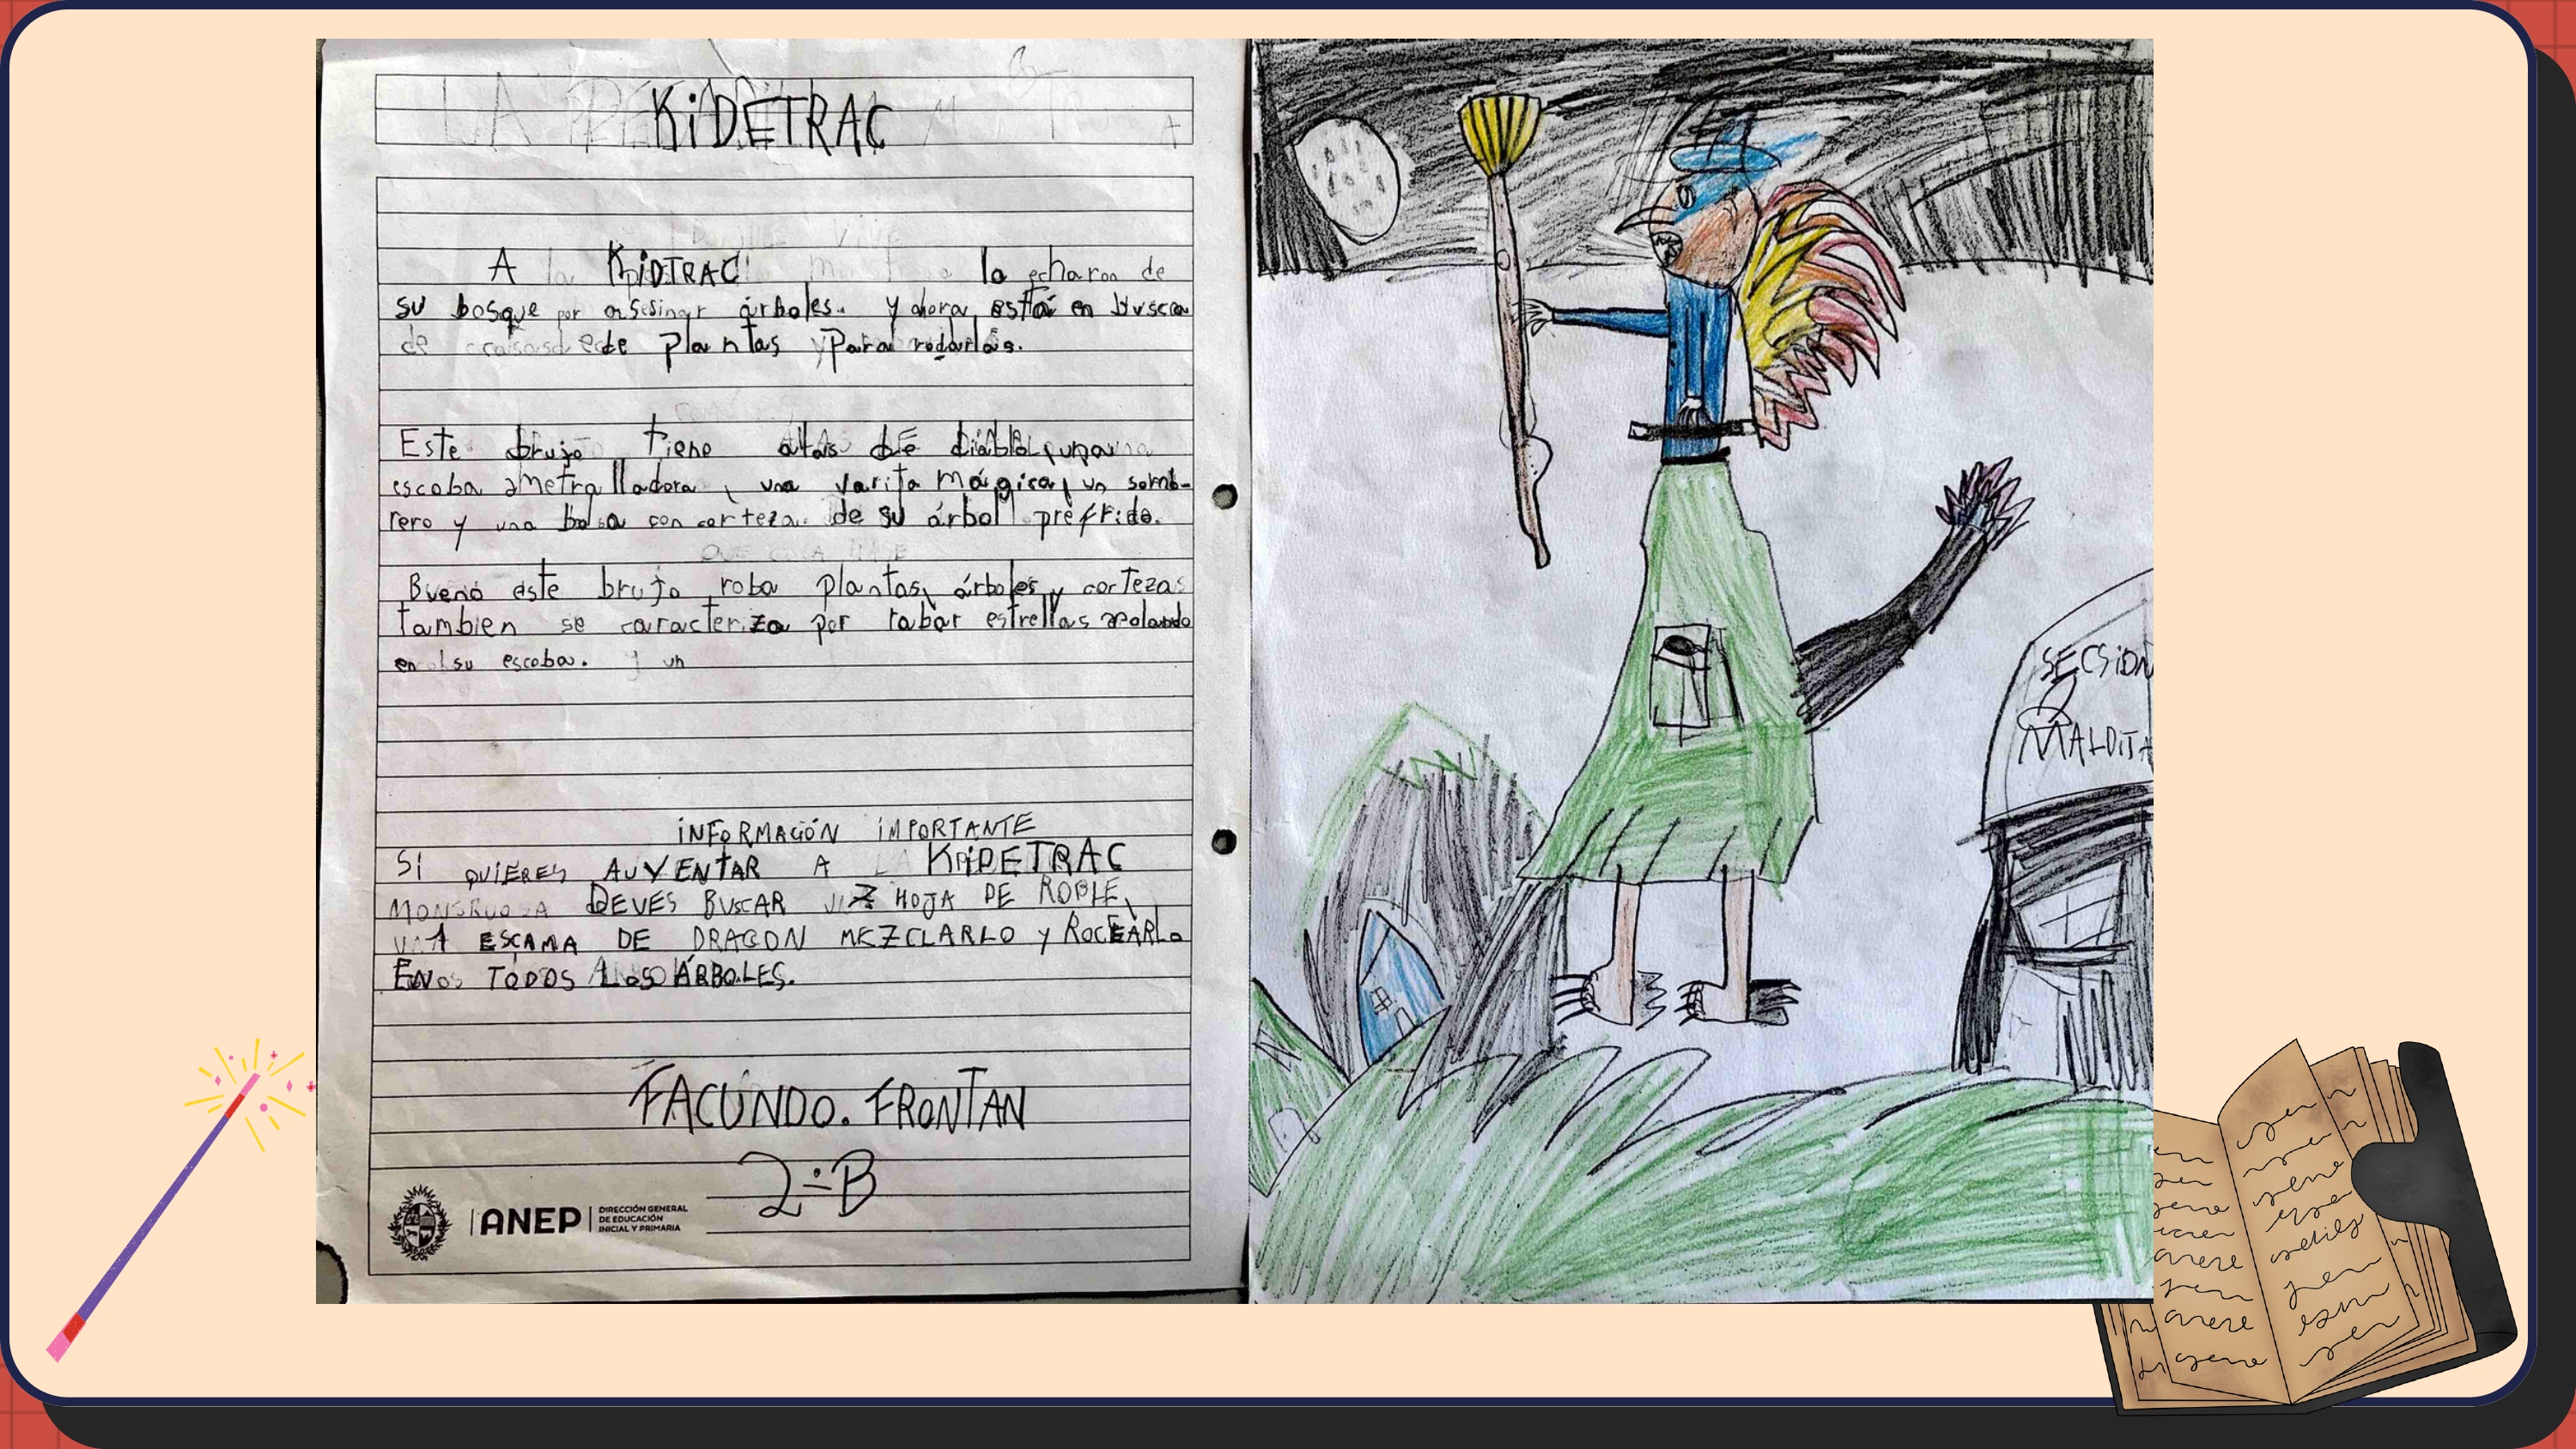 KiDETRAC
A KiDTRAC lo echaron de
su bosque por asesinar árboles. y ahora está en busca
de plantas para rodarlas.
Este brujo tiene alas DE Diablo, una
escoba ametralladora, una varita mágica, un somb-
rero y una bolsa con corteza de su árbol preferido.
Bueno este brujo roba plantas, árboles y cortezas
tambien se caracteriza por rabar estrellas volando
en su escoba.
iNFORMACIÓN iMPORTANTE
Si QUiERES AUYENTAR A KiDETRAC
DEVES BUSCAR HOJA DE ROBLE,
ESCAMA DE DRAGON MEZCLARLO y ROCEARLo
EN TODOS LoS ÁRBOLES.
FACUNDO. FRONTAN
2º B
ANEP
DIRECCIÓN GENERAL
DE EDUCACIÓN
INICIAL Y PRIMARIA
SECSiON
MALDiTA